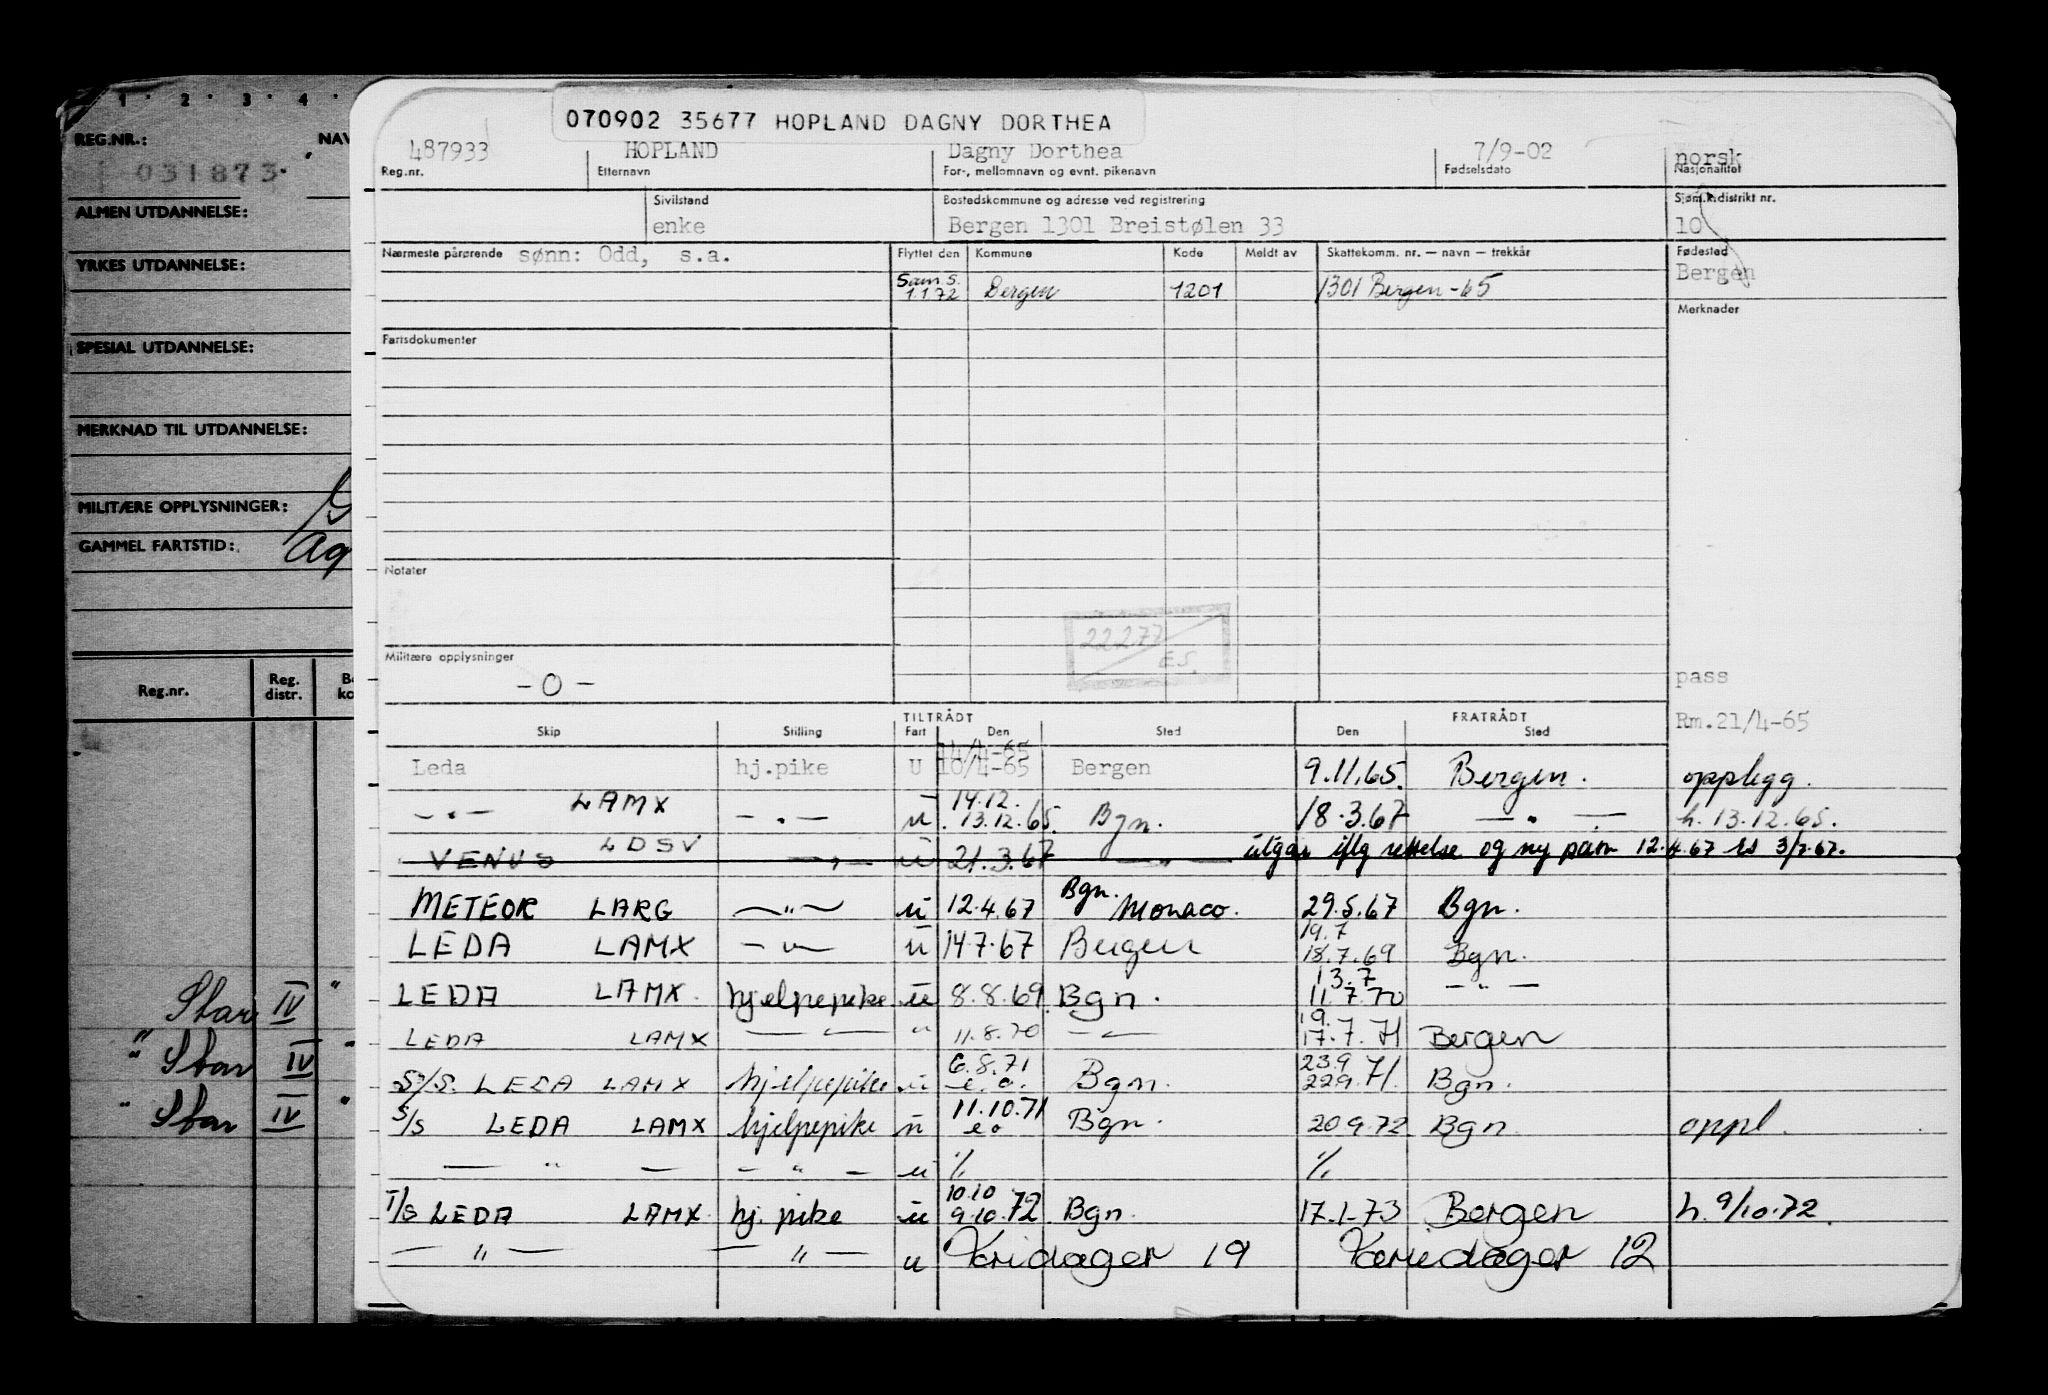 1 · 2 · 3 · 4 ·
REG.NR.: NAV
031873
ALMEN UTDANNELSE:
YRKES UTDANNELSE:
SPESIAL UTDANNELSE:
MERKNAD TIL UTDANNELSE:
MILITÆRE OPPLYSNINGER:
GAMMEL FARTSTID:
Reg.nr. Reg. distr.
Star IV "
" Star IV "
" Star IV "
070902 35677 HOPLAND DAGNY DORTHEA
487933 HOPLAND Dagny Dorthea 7/9-02 norsk
Reg.nr. Etternavn For-, mellomnavn og evnt. pikenavn Fødselsdato Nasjonalitet
Sivilstand Bostedskommune og adresse ved registrering Sjøm.k.distrikt nr.
enke Bergen 1301 Breistølen 33 10
Nærmeste pårørende sønn: Odd, s.a. Flyttet den Kommune Kode Meldt av Skattekomm. nr. — navn — trekkår Fødested
Bergen
Sam S. 1.1.72 Bergen 1201 1301 Bergen -65
Merknader
Fartsdokumenter
Notater
22277 ES.
Militære opplysninger
- 0 -
pass
TILTRÅDT FRATRÅDT Rm.21/4-65
Skip Stilling Fart Den Sted Den Sted
14/4-65
Leda hj.pike U 10/4-65 Bergen 9.11.65. Bergen. opplegg.
— " — LAMX — " — u 14.12. 13.12.65. Bgn. 18.3.67 — " — h. 13.12.65.
VENUS LDSV — " — u 21.3.67 — " — utgår iflg rettelse og ny 12.4.67 3/7.67.
METEOR LARG — " — u 12.4.67 Bgn. Monaco. 29.5.67 Bgn.
LEDA LAMX — " — u 14.7.67 Bergen 19.7 18.7.69 Bgn.
LEDA LAMX. hjelpepike u 8.8.69 Bgn. 13.7 11.7.70 — " —
LEDA LAMX — " — " 11.8.70 — " — 19. 17.7.71 Bergen
S/S. LEDA LAMX hjelpepike u 6.8.71 e.o. Bgn. 23.9 22.9.71. Bgn.
S/s LEDA LAMX hjelpepike u 11.10.71 eo Bgn. 20.9.72 Bgn. oppl.
— " — — " — u % %
T/S LEDA LAMX. hj. pike u 10.10 9.10.72. Bgn. 17.1.73 Bergen h. 9/10.72.
— " — — " — u Karidager 19 Kariedager 12